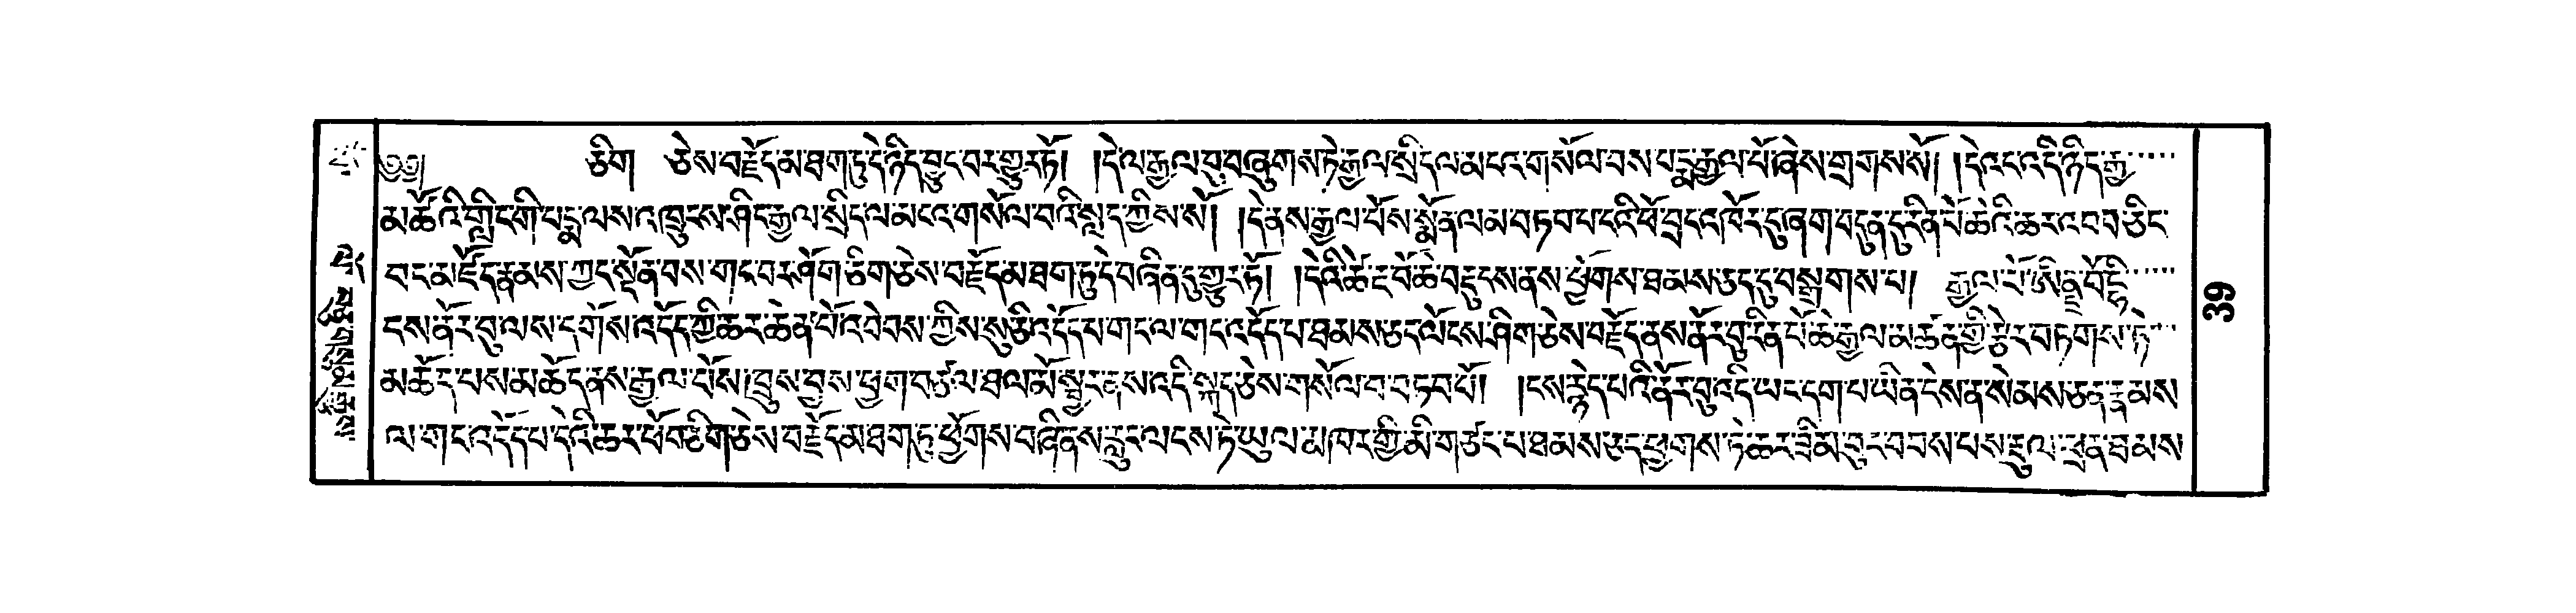 ༄༅། ཅིག ཅེས་བརྗོད་མ་ཐག་ཏུ་དེ་ཉིད་བྱུང་བར་གྱུར་ཏོ། །དེ་ལ་རྒྱལ་བུ་བཞུགས་ཏེ་རྒྱལ་སྲིད་ལ་མངའ་གསོལ་བས་པདྨ་རྒྱལ་པོ་ཞེས་གྲགས་སོ། །དེ་ཡང་འདི་ཉིད་རྒྱ་
མཚོའི་གླིང་གི་པདྨ་ལས་འཁྲུངས་ཤིང་རྒྱལ་སྲིད་ལ་མངའ་གསོལ་བའི་སླད་ཀྱིས་སོ། །དེ་ནས་རྒྱལ་པོས་སྨོན་ལམ་བཏབ་པ་ངའི་ཕོ་བྲང་འཁོར་དུ་ཞག་བདུན་དུ་རིན་པོ་ཆེའི་ཆར་འབབ་ཅིང་
བང་མཛོད་རྣམས་ཀྱང་སྔོན་བས་གང་བར་ཤོག་ཅིག་ཅེས་བརྗོད་མ་ཐག་ཏུ་དེ་བཞིན་དུ་གྱུར་ཏོ། །དེའི་ཚེ་རྔ་བོ་ཆེ་བརྡུངས་ནས་ཕྱོགས་ཐམས་ཅད་དུ་བསྒྲགས་པ། རྒྱལ་པོ་ཨིནྡྲ་བོ་དྷི་
ངས་ནོར་བུ་ལས་དགོས་འདོད་ཀྱི་ཆར་ཆེན་པོ་འབེབས་ཀྱིས་སུ་ཅི་འདོད་པ་གང་ལ་གང་འདོད་པ་ཐམས་ཅད་ལོངས་ཤིག་ཅེས་བརྗོད་ནས་ནོར་བུ་རིན་པོ་ཆེ་རྒྱལ་མཚན་གྱི་རྩེར་བཏགས་ཏེ་
མཆོད་པས་མཆོད་ནས་རྒྱལ་པོས་ཁྲུས་བྱས་ཕྱག་བཙལ་ཐལ་མོ་སྦྱར་ནས་འདི་སྐད་ཅེས་གསོལ་བ་བཏབ་བོ། །ངས་རྙེད་པའི་ནོར་བུ་འདི་ཡང་དག་པ་ཡིན་ངེས་ན་སེམས་ཅན་རྣམས་
ལ་གང་འདོད་པ་དེའི་ཆར་ཕོབ་ཅིག་ཅེས་བརྗོད་མ་ཐག་ཏུ་ཕྱོགས་བཞི་ནས་རླུང་ལངས་ཏེ་ཡུལ་མཁར་གྱི་མི་གཙང་པ་ཐམས་ཅད་ཕྱགས་ཏེ་ཆར་ཟིམ་བུར་བབས་པས་རྡུལ་ཕྲན་ཐམས་